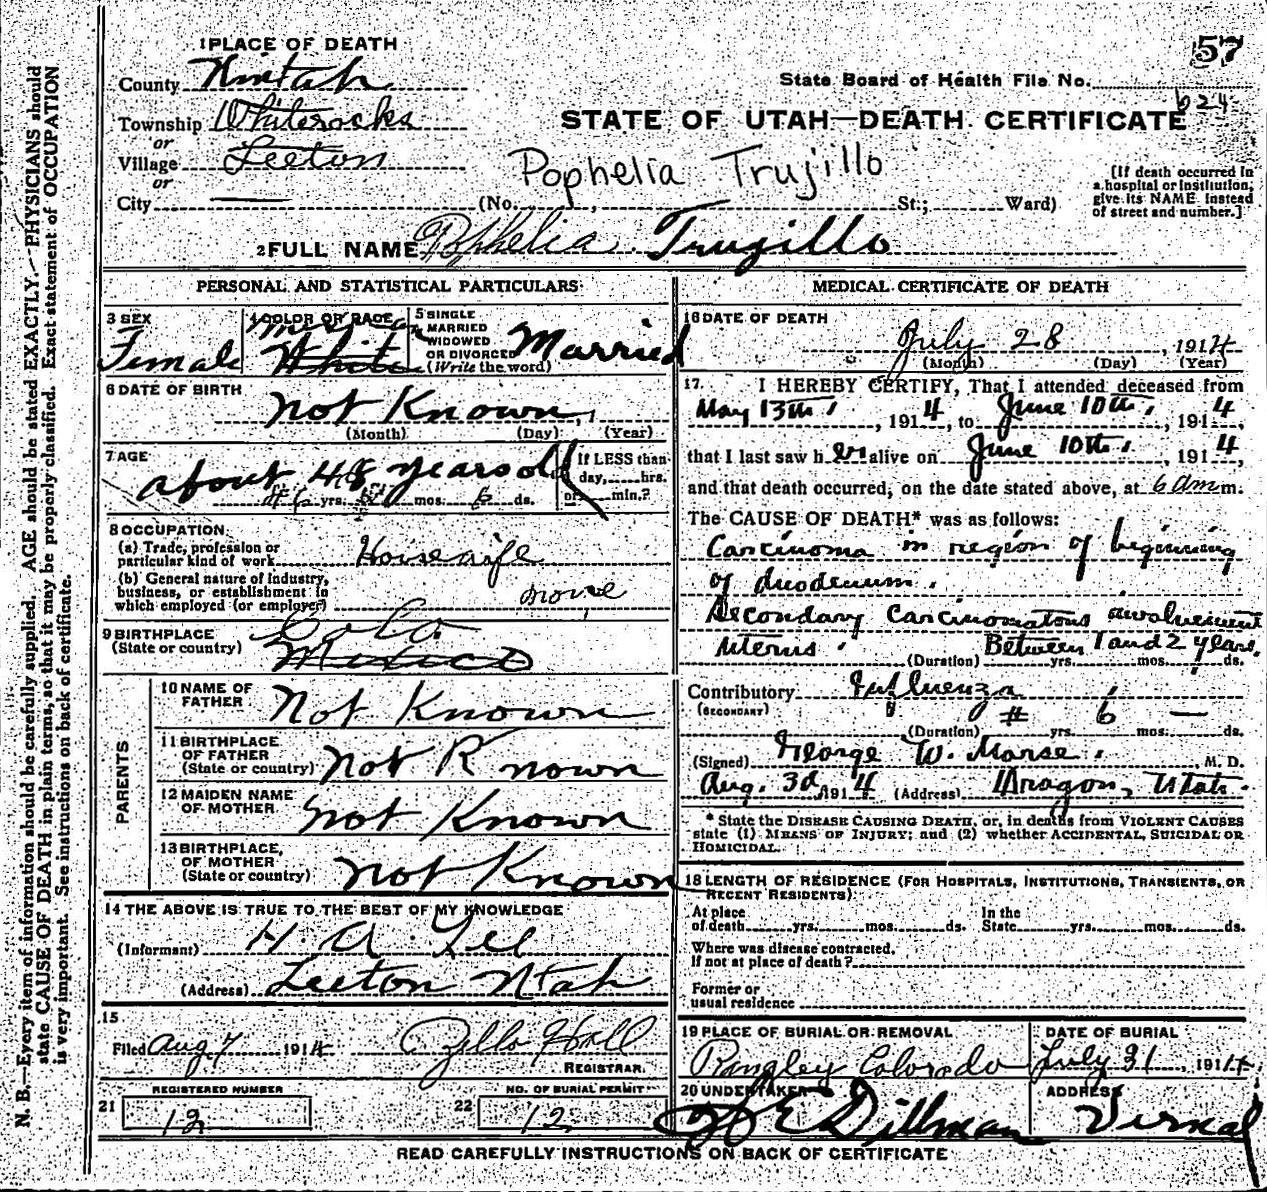 57
1 PLACE OF DEATH
County Uintah
State Board of Health File No.
624
Township Whiterocks
STATE OF UTAH—DEATH CERTIFICATE
or
Village Leeton
Pophelia Trujillo
or
City — (No. , St.; Ward)
[If death occurred in
a hospital or institution,
give its NAME instead
of street and number.]
2 FULL NAME Pophelia Trugillo
PERSONAL AND STATISTICAL PARTICULARS
3 SEX
Female
4 COLOR OR RACE
Mexican
White
5 SINGLE
MARRIED
WIDOWED
OR DIVORCED
(Write the word)
Married
6 DATE OF BIRTH
not Known
(Month) (Day) (Year)
7 AGE
about 48 years old
46 yrs. mos. 6 ds.
If LESS than
day, hrs.
or min.?
8 OCCUPATION
(a) Trade, profession or
particular kind of work Housewife
(b) General nature of industry,
business, or establishment in
which employed (or employer) none
9 BIRTHPLACE
(State or country)
Colo
Mexico
PARENTS
10 NAME OF
FATHER Not Known
11 BIRTHPLACE
OF FATHER
(State or country) not Known
12 MAIDEN NAME
OF MOTHER not Known
13 BIRTHPLACE
OF MOTHER
(State or country) not Known
14 THE ABOVE IS TRUE TO THE BEST OF MY KNOWLEDGE
(Informant) H. A. Lee
(Address) Leeton Utah
15
Filed Aug 7 1914 Zella Hall
REGISTRAR.
REGISTERED NUMBER
21 12
NO. OF BURIAL PERMIT
22 12
MEDICAL CERTIFICATE OF DEATH
16 DATE OF DEATH
July 28, 1914
(Month) (Day) (Year)
17. I HEREBY CERTIFY, That I attended deceased from
May 13th, 1914, to June 10th, 1914
that I last saw her alive on June 10th, 1914,
and that death occurred, on the date stated above, at 6 am m.
The CAUSE OF DEATH* was as follows:
Carcinoma in region of beginning
of duodenum.
Secondary Carcinomatous involvement
uterus.
(Duration) Between 1 and 2 years.
yrs. mos. ds.
Contributory Influenza
(SECONDARY)
(Duration) yrs. 6 mos. — ds.
(Signed) George W. Morse, M. D.
Aug. 3d 1914 (Address) Dragon, Utah.
* State the DISEASE CAUSING DEATH, or, in deaths from VIOLENT CAUSES
state (1) MEANS OF INJURY; and (2) whether ACCIDENTAL, SUICIDAL OR
HOMICIDAL.
18 LENGTH OF RESIDENCE (FOR HOSPITALS, INSTITUTIONS, TRANSIENTS, OR
RECENT RESIDENTS)
At place
of death yrs. mos. ds.
In the
State yrs. mos. ds.
Where was disease contracted,
If not at place of death?
Former or
usual residence
19 PLACE OF BURIAL OR REMOVAL
Rangley Colorado
DATE OF BURIAL
July 31, 1914
20 UNDERTAKER
E Dillman
ADDRESS
Vernal
READ CAREFULLY INSTRUCTIONS ON BACK OF CERTIFICATE
N. B.—Every item of information should be carefully supplied. AGE should be stated EXACTLY. PHYSICIANS should
state CAUSE OF DEATH in plain terms, so that it may be properly classified. Exact statement of OCCUPATION
is very important. See instructions on back of certificate.